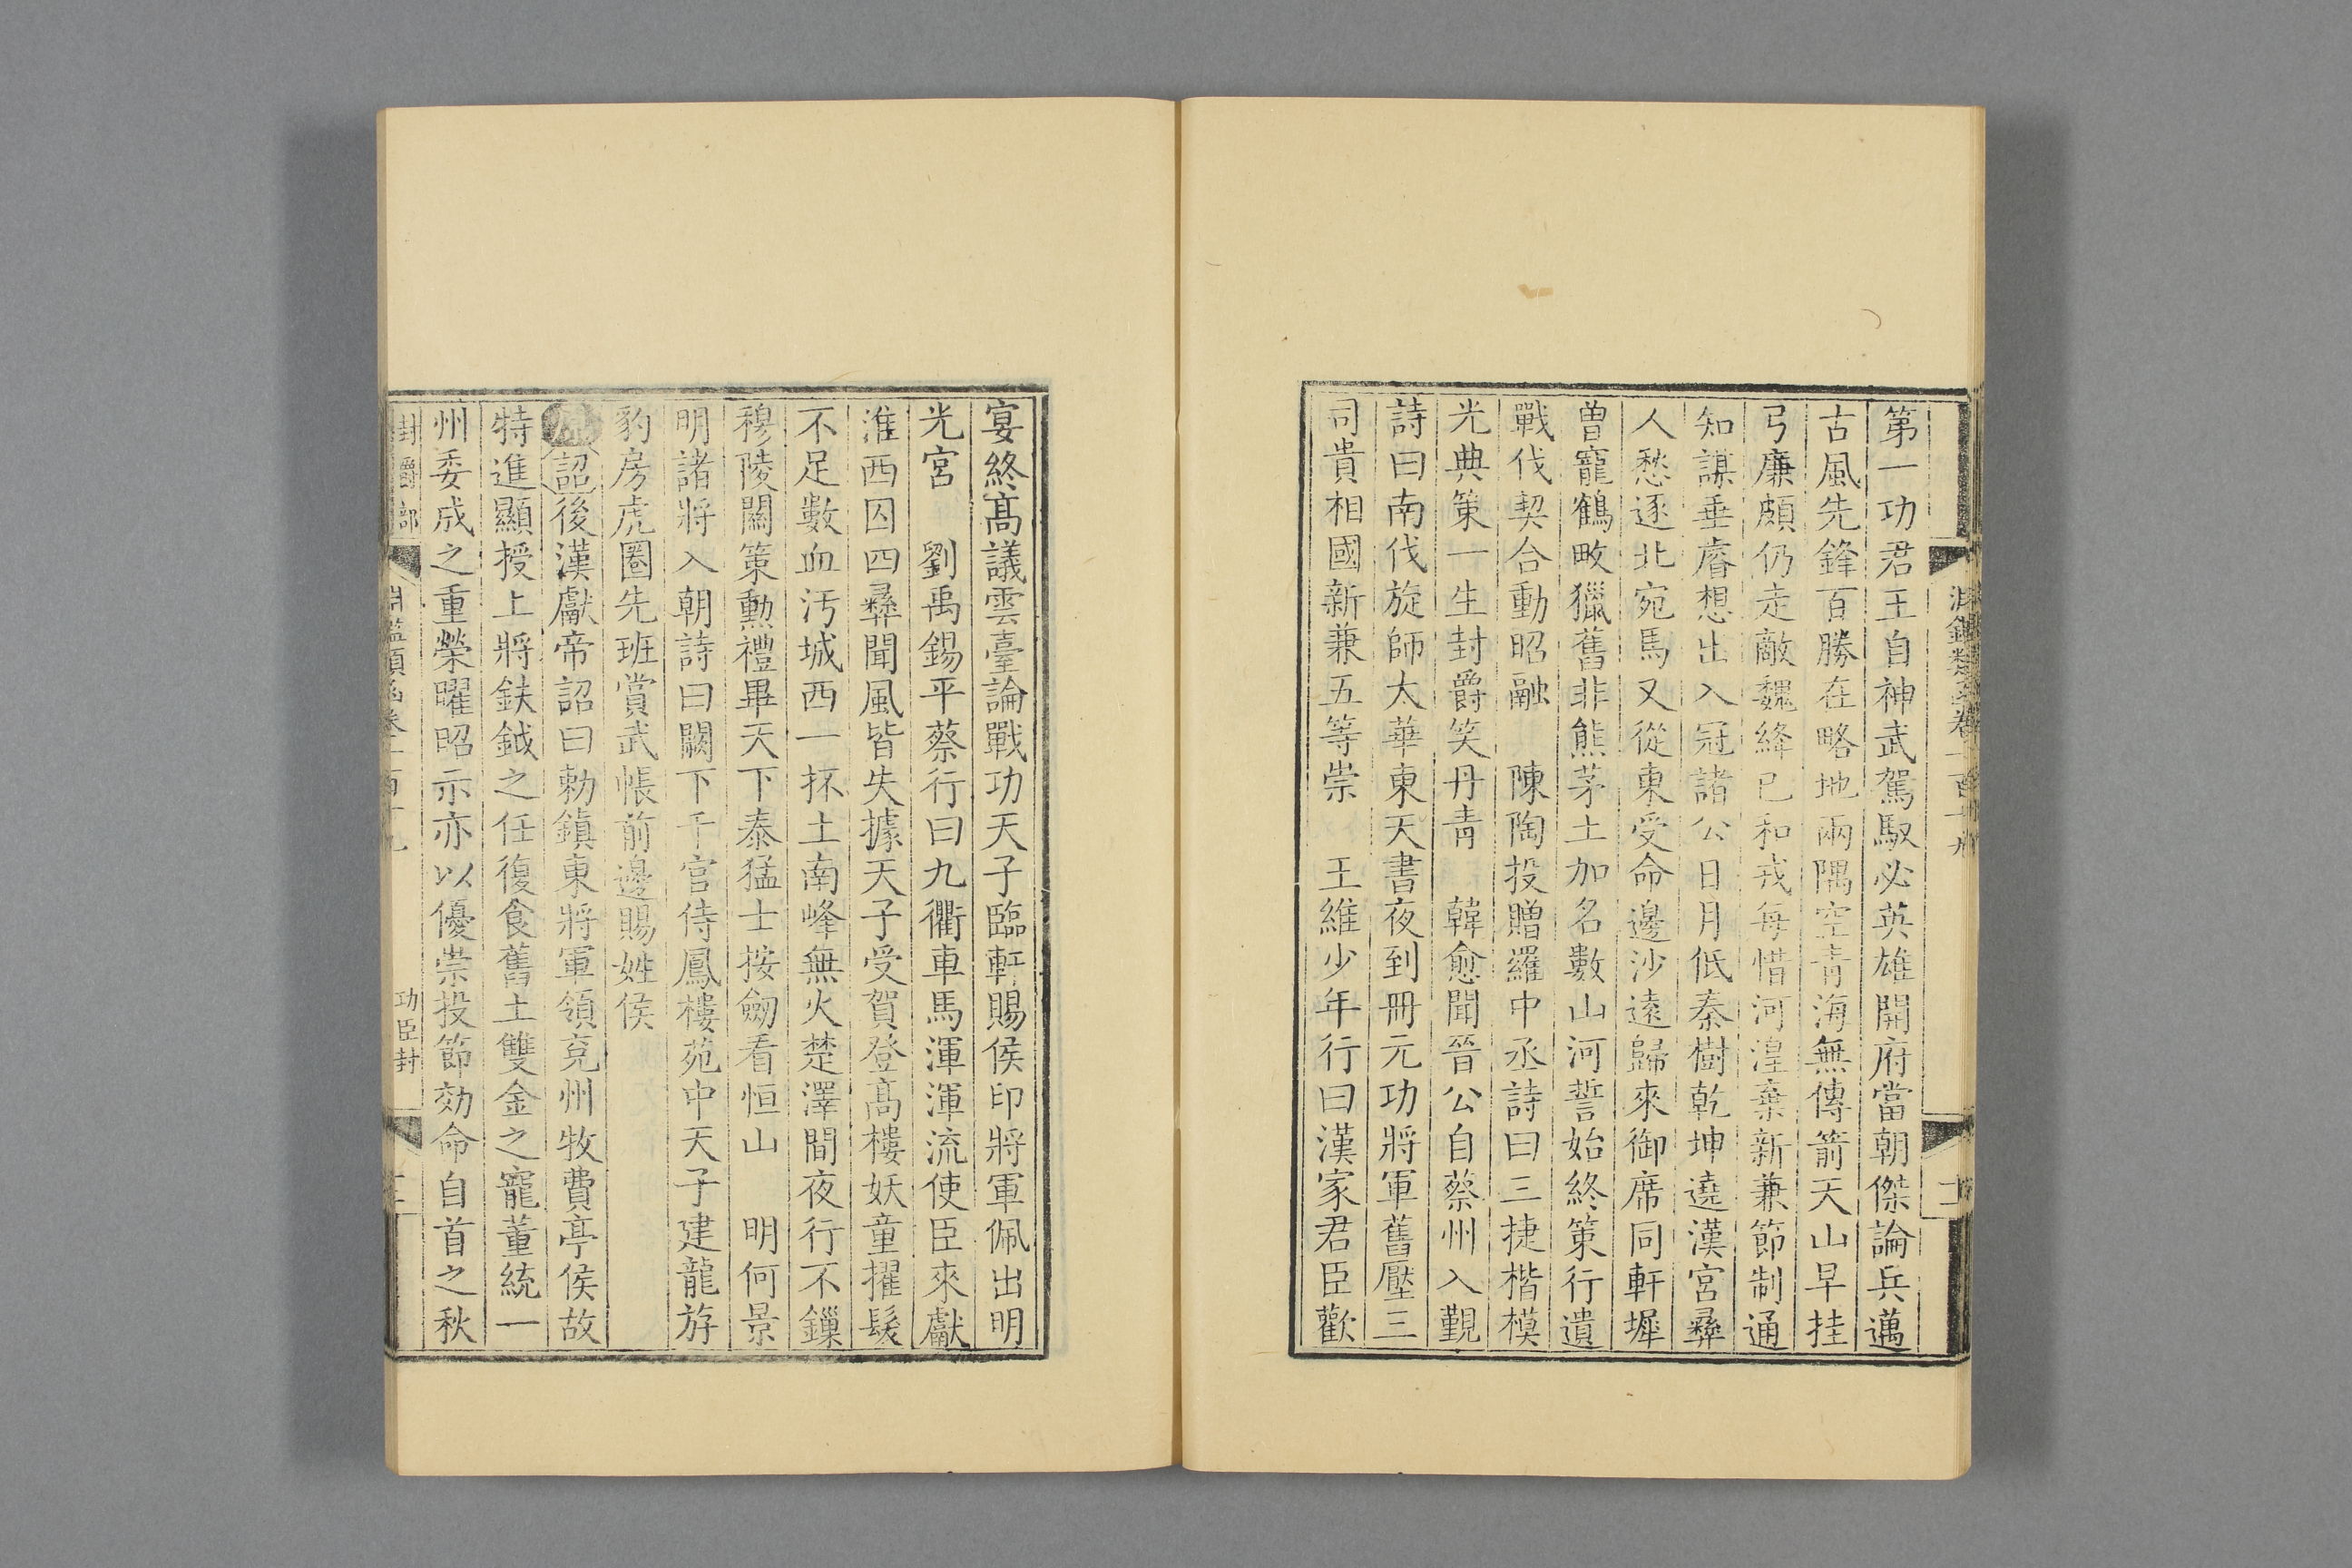 淵鑑類函卷一百十九
二
第一功君王自神武駕馭必英雄開府當朝傑論兵邁
古風先鋒百勝在略地兩隅空青海無傳箭天山早挂
弓廉頗仍走敵魏絳已和戎每惜河湟棄新兼節制通
知謀垂睿想出入冠諸公日月低秦樹乾坤遶漢宮彝
人愁逐北宛馬又從東受命邊沙遠歸來御席同軒墀
曾寵鶴畋獵舊非熊茅土加名數山河誓始終策行遺
戰伐契合動昭融　陳陶投贈羅中丞詩曰三捷楷模
光典策一生封爵笑丹青　韓愈聞晉公自蔡州入覲
詩曰南伐旋師太華東天書夜到冊元功將軍舊壓三
司貴相國新兼五等崇　王維少年行曰漢家君臣歡
宴終高議雲臺論戰功天子臨軒賜侯印將軍佩出明
光宮　劉禹錫平蔡行曰九衢車馬渾渾流使臣來獻
淮西囚四彝聞風皆失據天子受賀登高樓妖童擢髮
不足數血汚城西一抔土南峰無火楚澤間夜行不鏁
穆陵關策勳禮畢天下泰猛士按劒看恒山　明何景
明諸將入朝詩曰闕下千官侍鳳樓苑中天子建龍斿
豹房虎圈先班賞武帳前邊賜姓侯
詔後漢獻帝詔曰勑鎮東將軍領兗州牧費亭侯故
特進顯授上將鈇鉞之任復食舊土雙金之寵董統一
州委成之重榮曜昭示亦以優崇投節効命自首之秋
封爵部
淵鑑類函卷一百十九
功臣封